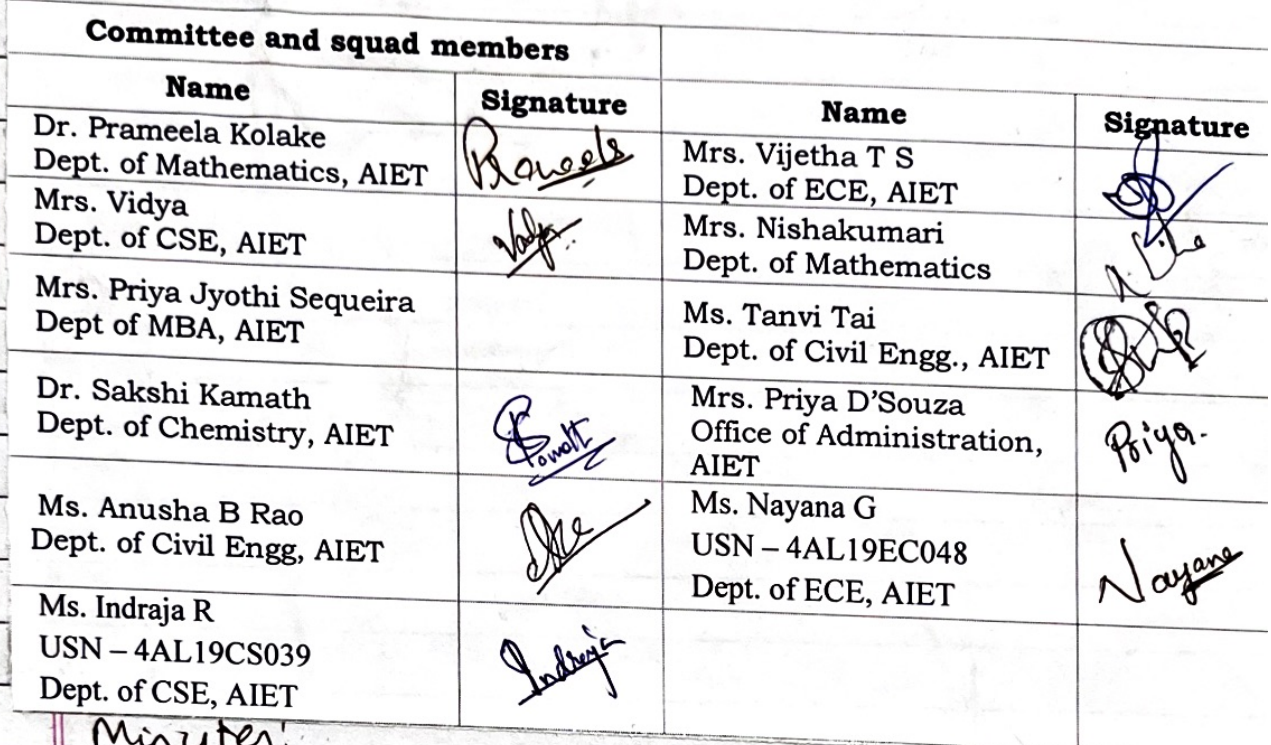 Committee and squad members
Name
Signature
Name
Signature
Dr. Prameela Kolake
Dept. of Mathematics, AIET
Mrs. Vijetha T S
Dept. of ECE, AIET
Mrs. Vidya
Dept. of CSE, AIET
Mrs. Nishakumari
Dept. of Mathematics
Mrs. Priya Jyothi Sequeira
Dept of MBA, AIET
Ms. Tanvi Tai
Dept. of Civil Engg., AIET
Dr. Sakshi Kamath
Dept. of Chemistry, AIET
Mrs. Priya D'Souza
Office of Administration,
AIET
Priya.
Ms. Anusha B Rao
Dept. of Civil Engg, AIET
Ms. Nayana G
USN – 4AL19EC048
Dept. of ECE, AIET
Nayana
Ms. Indraja R
USN – 4AL19CS039
Dept. of CSE, AIET
Indraja
Minutes: